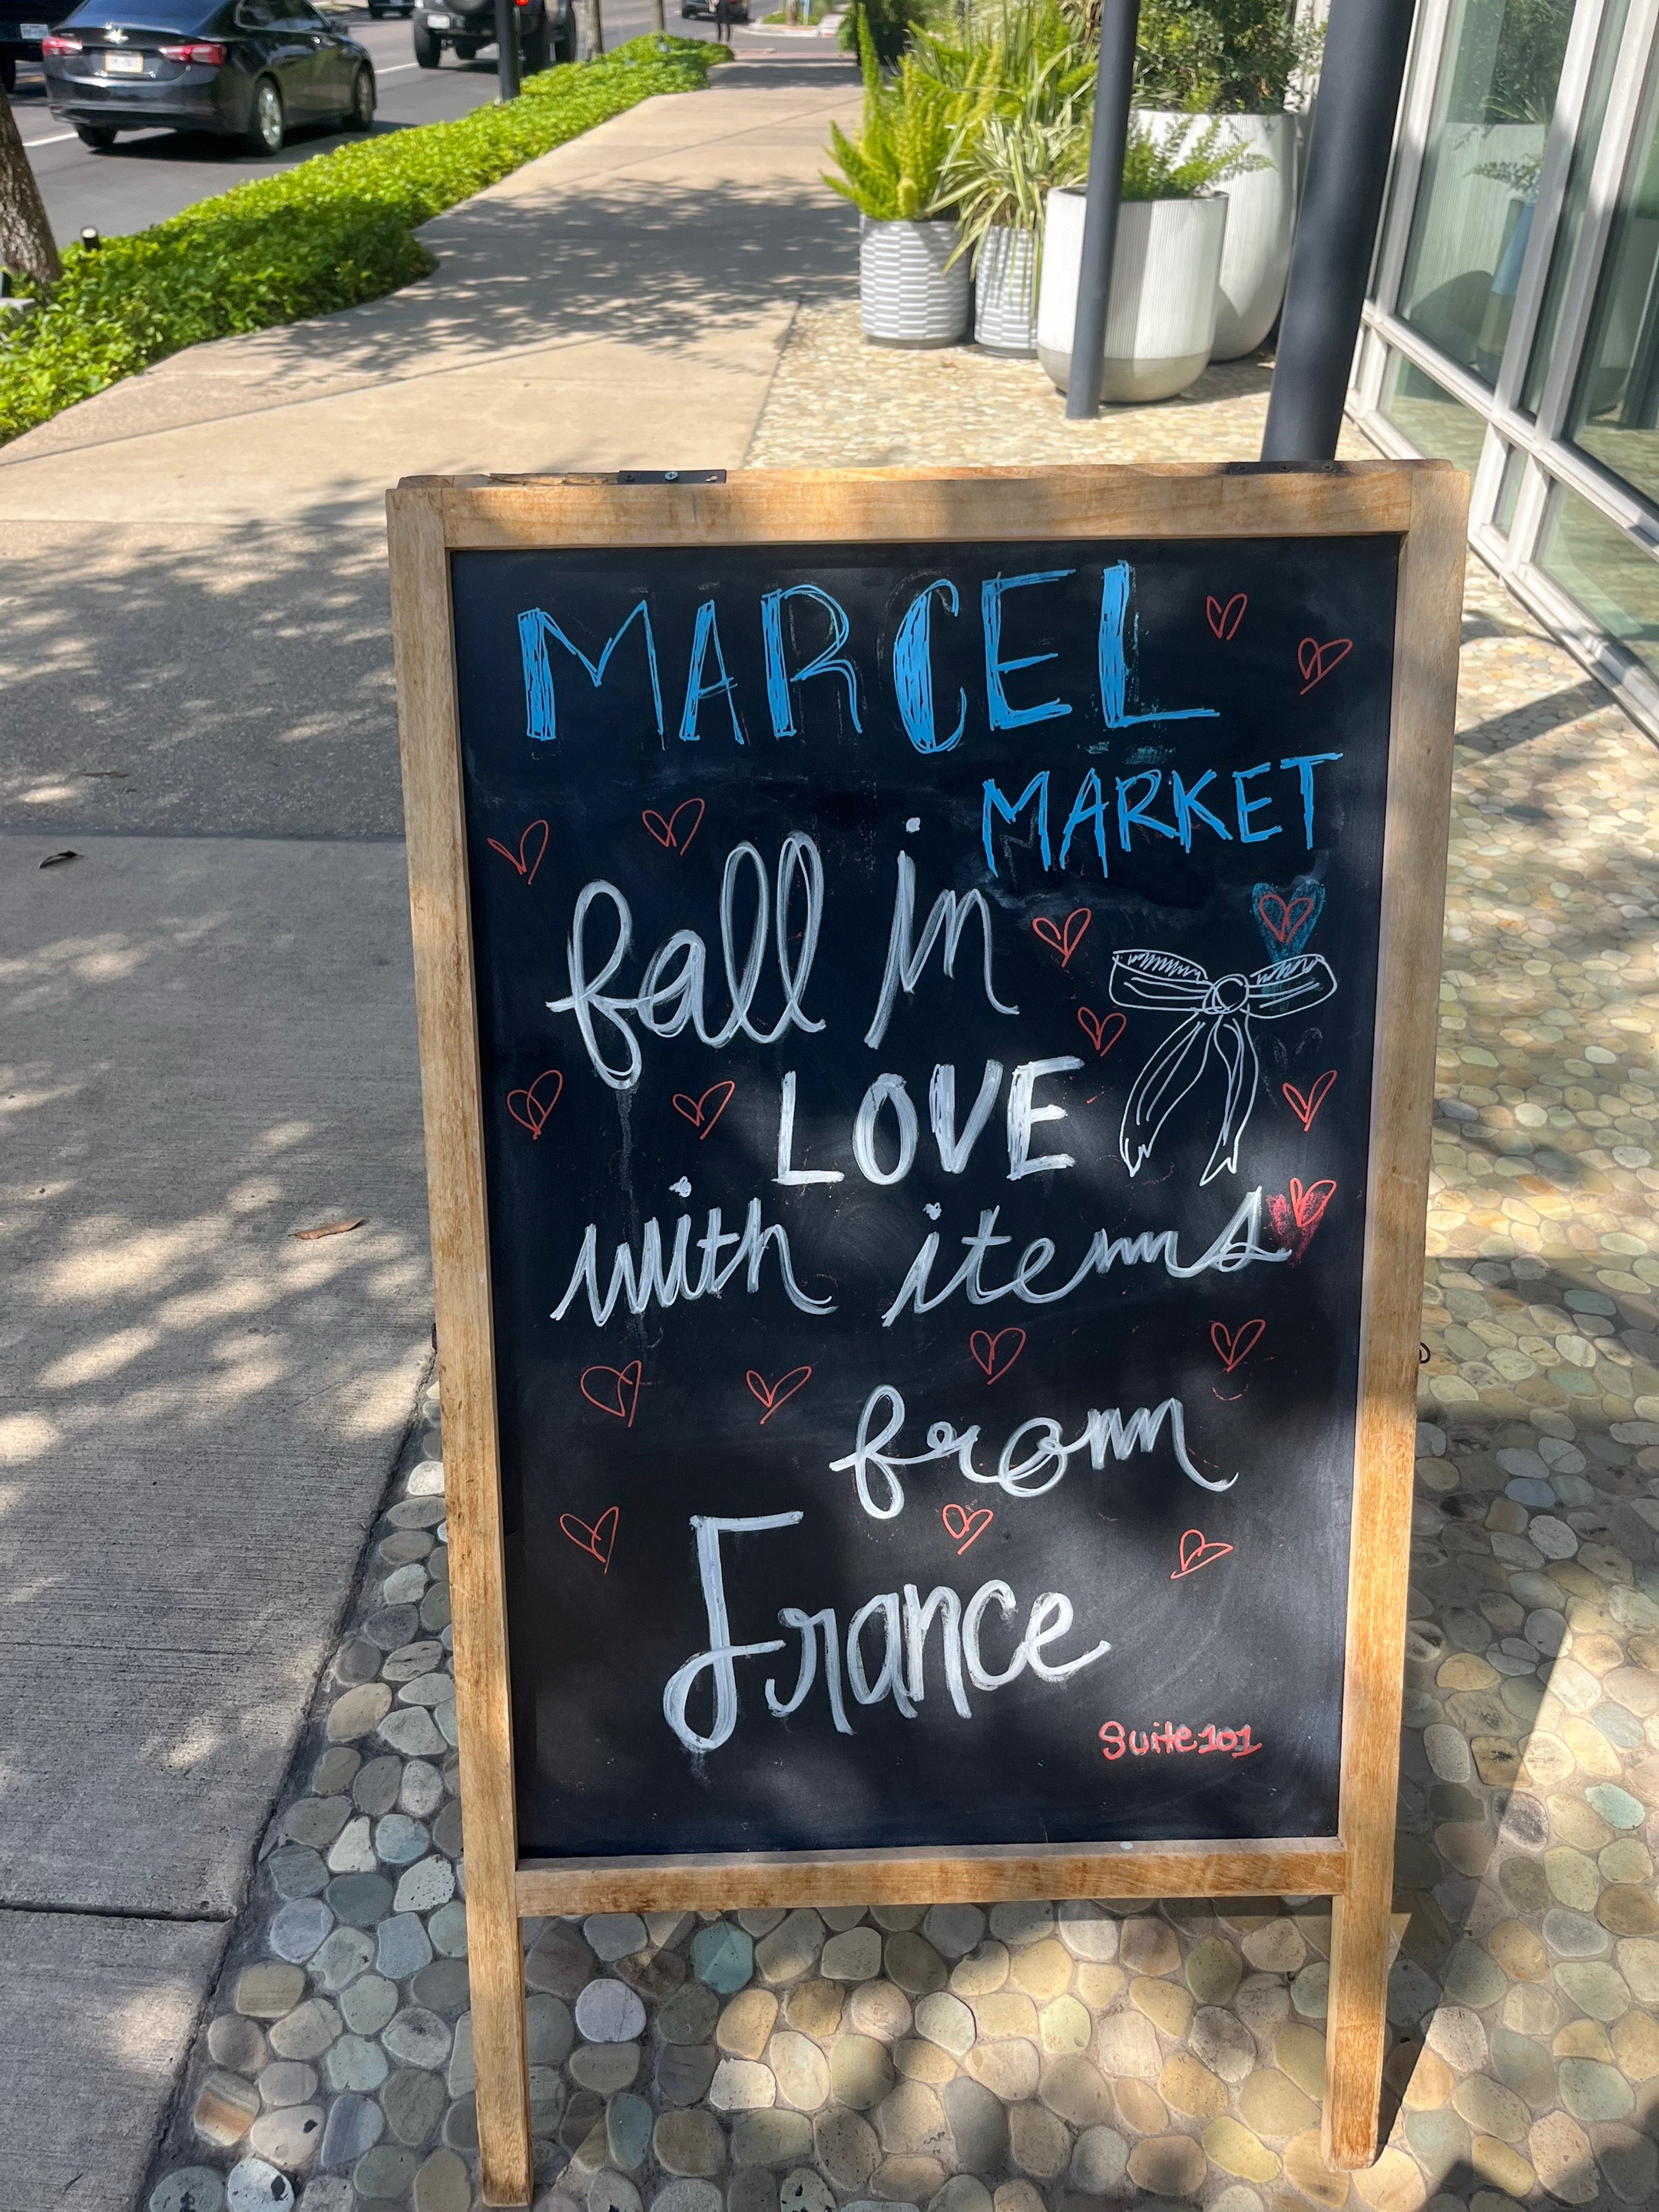 MARCEL
MARKET
fall in
LOVE
with items
from
France
Suite 101